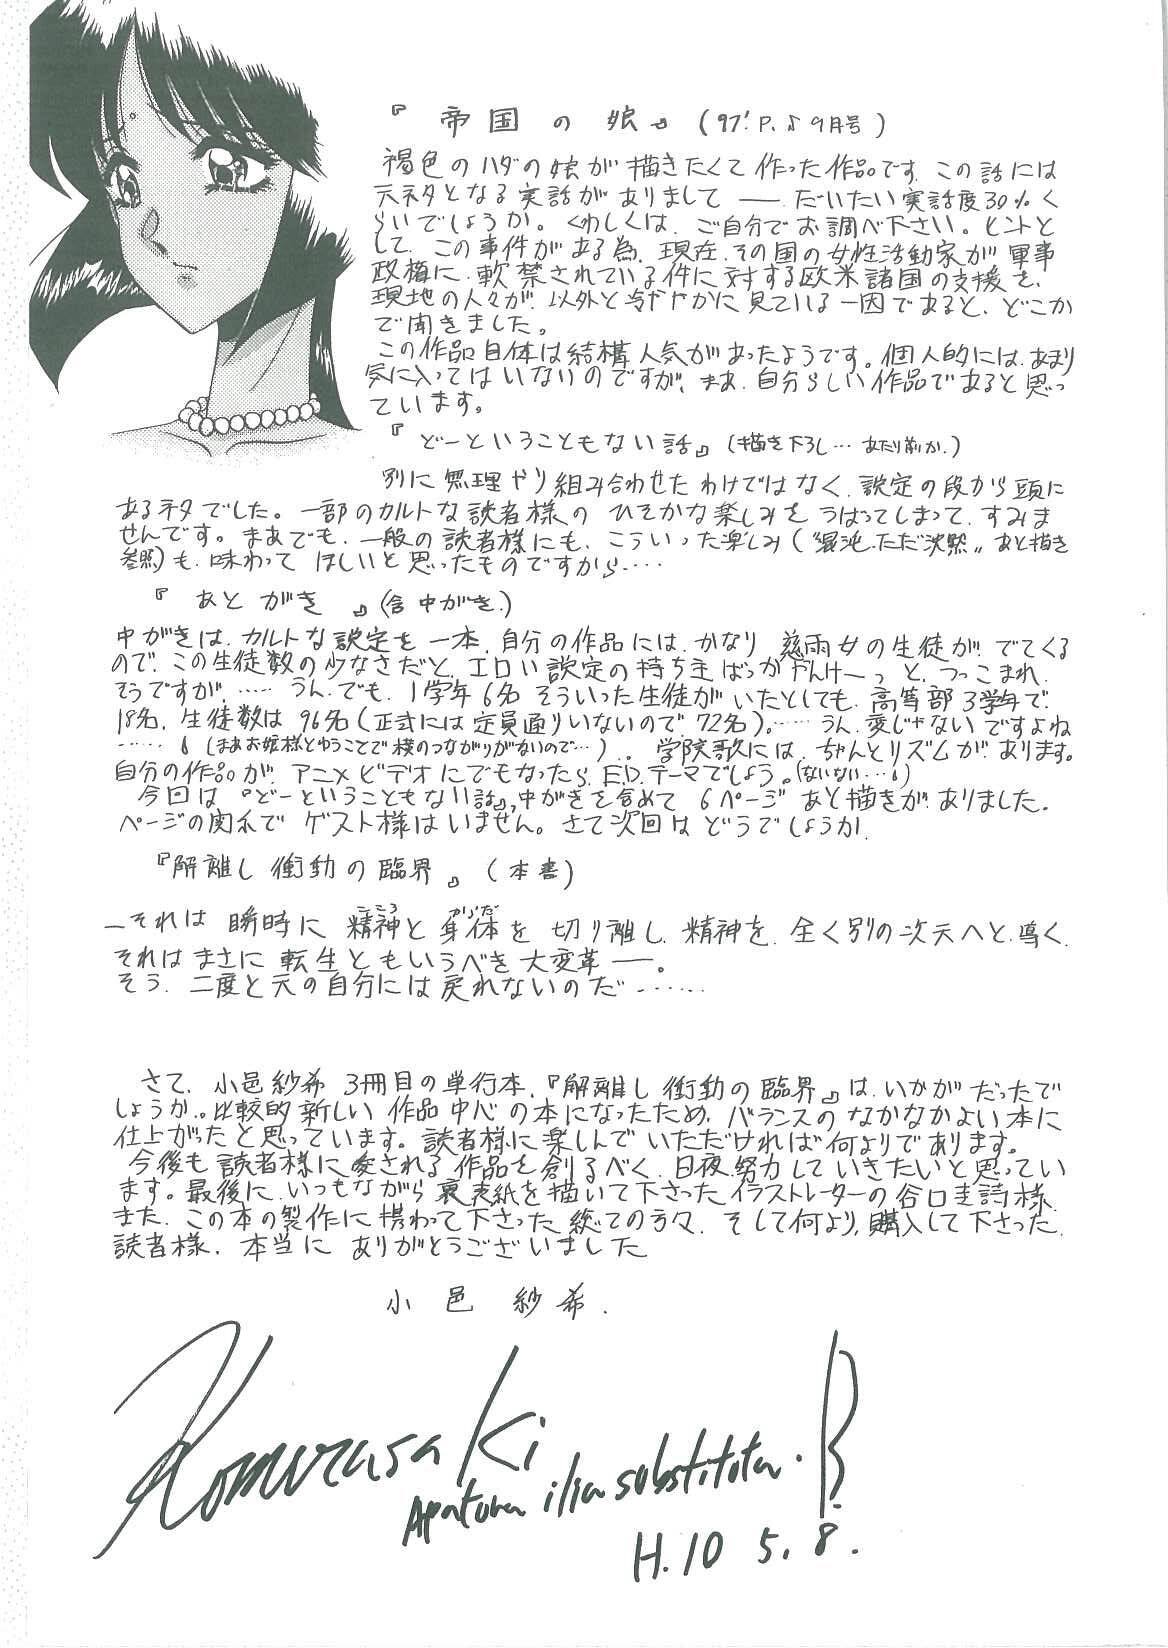 『 帝国の娘 』 (97' P.♪ 9月号)
褐色のハダの娘が描きたくて作った作品です。この話には
元ネタとなる実話がありまして —— だいたい実話度30%く
らいでしょうか。くわしくは、ご自分でお調べ下さい。ヒントと
して、この事件がある為、現在、その国の女性活動家が軍事
政権に、軟禁されている件に対する欧米諸国の支援を、
現地の人々が、以外と冷ややかに見ている一因であると、どこか
で聞きました。
この作品自体は結構人気があったようです。個人的には、あまり
気に入ってはいないのですが、まあ、自分らしい作品であると思っ
ています。
『 どーということもない話 』 (描き下ろし… あたり前か.)
別に無理やり組み合わせたわけではなく、設定の段から頭に
あるネタでした。一部のカルトな読者様の ひそかな楽しみを うばってしまって、すみま
せんです。まあでも、一般の読者様にも、こういった楽しみ(“混沌、ただ沈黙„ あと描き
参照)も、味わって ほしいと思ったものですから‥‥
『 あと がき 』(含 中がき.)
中がきは、カルトな設定を一本、自分の作品には、かなり 慈雨女の生徒が でてくる
ので、この生徒数の少なさだと、エロい設定の持ち主ばっかやんけーっ と、つっこまれ
そうですが、…… うん、でも、1学年6名 そういった生徒がいたとしても、高等部3学年で、
18名、生徒数は96名(正式には定員通りいないので、72名)。…… うん、変じゃないですよね
…… (まあお嬢様とゆうことで横のつながりがないので…)‥ 学院歌には、ちゃんとリズムがあります。
自分の作品が、アニメビデオにでもなったら、E.D.テーマでしょう。(ないない…)
今回は『どーということもない話』、中がきを含めて 6ページ あと描きがありました.
ページの関係で ゲスト様はいません。さて次回はどうでしょうか.
『解離し衝動の臨界 』 (本書)
—それは 瞬時に 精神と 身体を 切り離し、精神を、全く別の次元へと、導く、
こころ からだ
それは まさに 転生ともいうべき 大変革 —— 。
そう、二度と元の自分には戻れないのだ‥‥‥
さて、小邑紗希 3冊目の単行本、『解離し衝動の臨界』は、いかがだったで
しょうか。比較的新しい 作品中心の本になったため、バランスの なかなかよい本に
仕上がったと思っています。読者様に楽しんでいただければ何よりであります。
今後も読者様に愛される作品を創るべく、日夜努力していきたいと思ってい
ます。最後に、いつもながら裏表紙を描いて下さった イラストレーターの谷口圭詩様、
また、この本の製作に携わって下さった総ての方々、そして何より、購入して下さった
読者様、本当に ありがとうございました
小邑 紗希.
Komurasaki
Apatura ilia substituta. B.
H.10 5. 8.